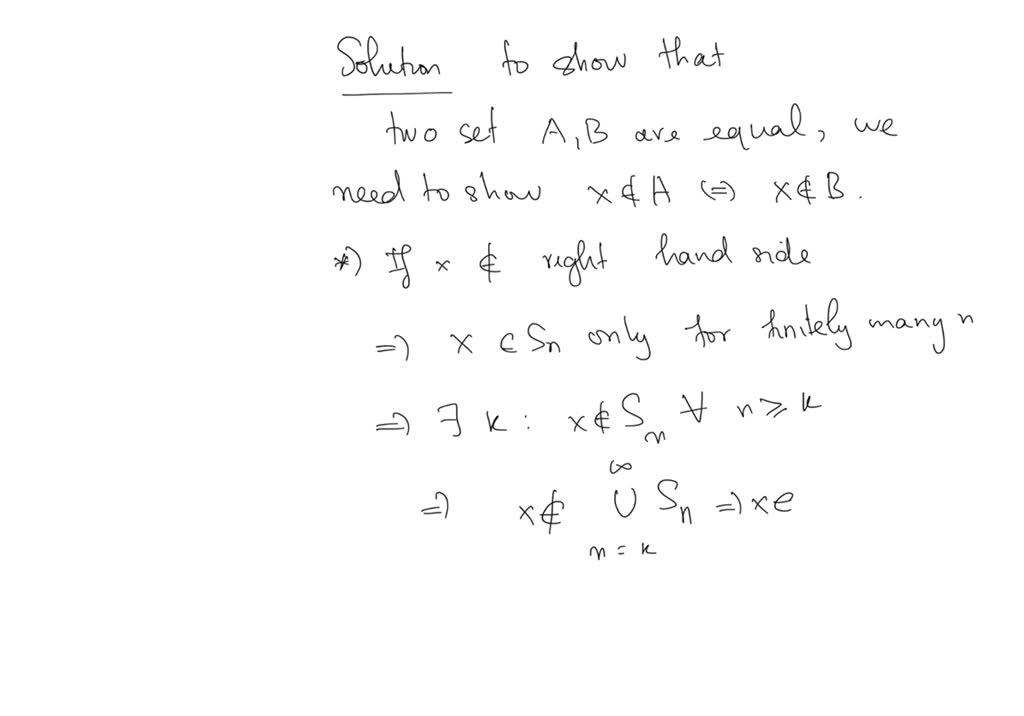 Solution to show that
two set A, B are equal, we
need to show x ∉ A (=) x ∉ B.
*) If x ∉ right hand side
=) x ∈ Sn only for finitely many n
=) ∃ k : x ∉ Sn ∀ n ≥ k
∞
=) x ∉ ∪ Sn =) x e
n = k